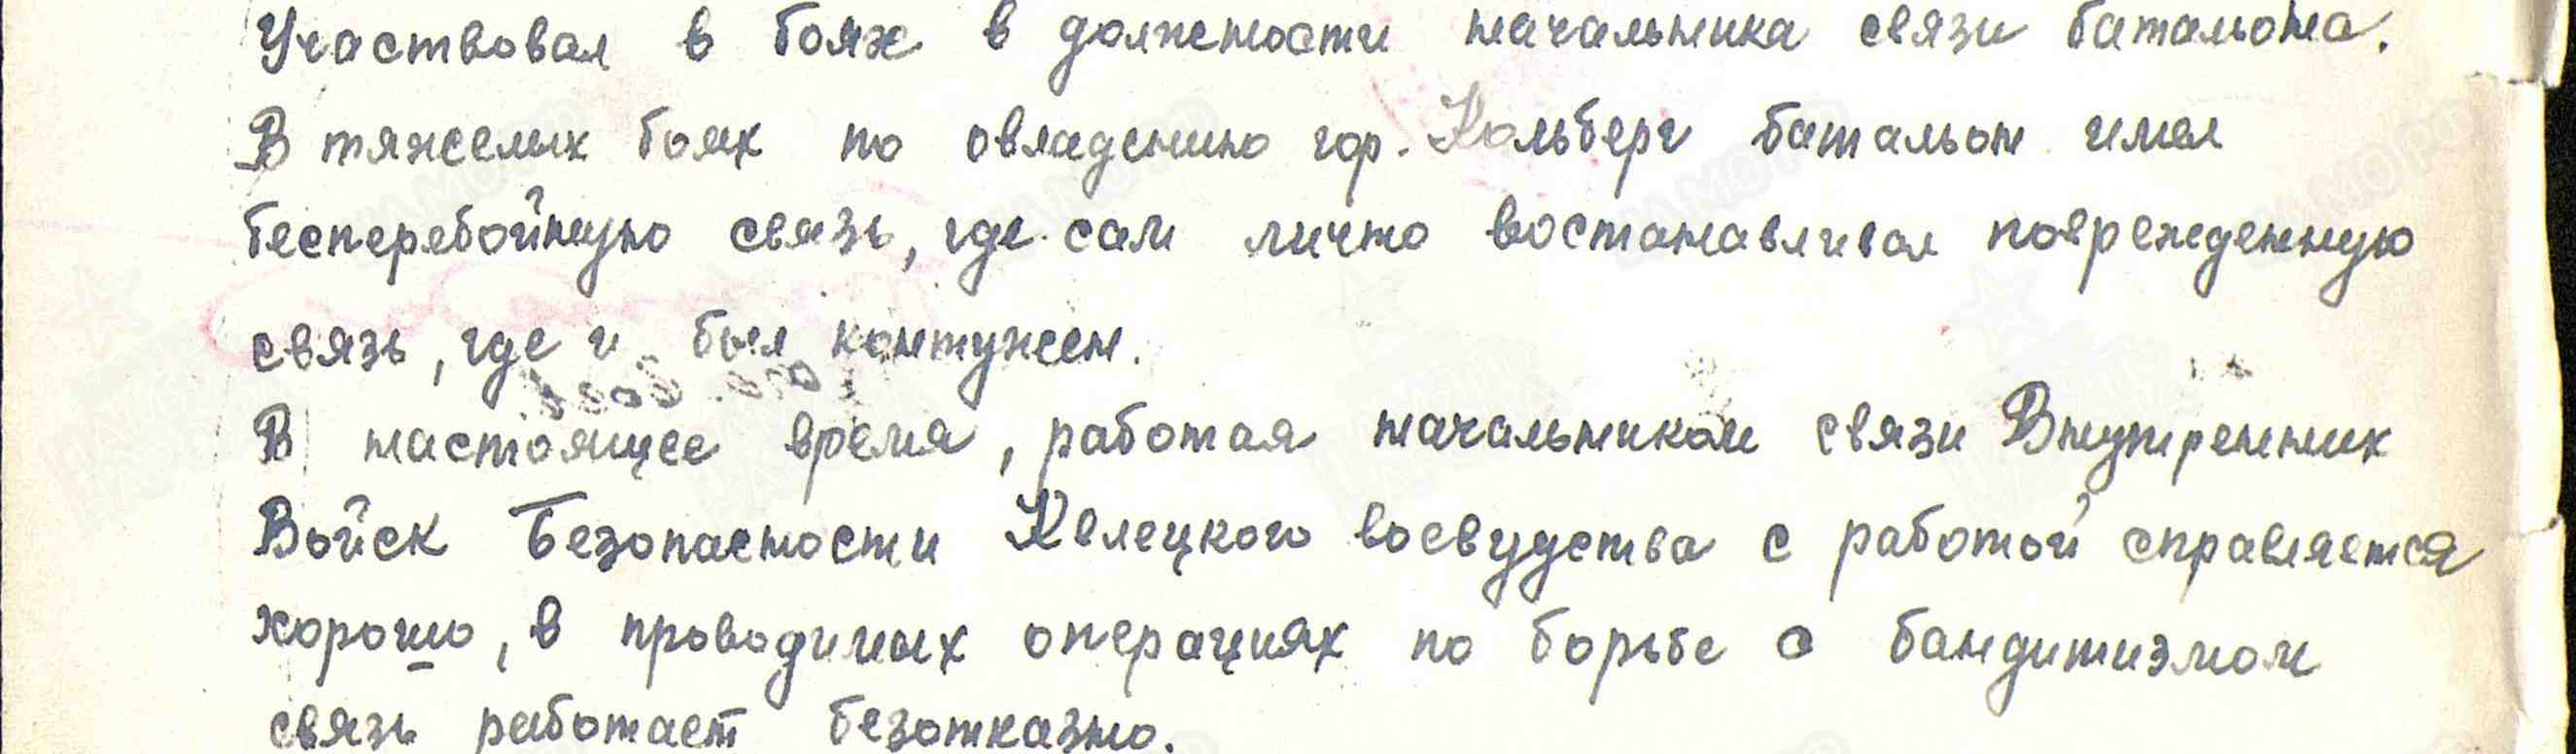 Участвовал в боях в должности начальника связи батальона.
В тяжелых боях по овладению гор. Кольберг батальон имел
бесперебойную связь, где сам лично востанавливал повրежденную
связь, где и был контужен.
В настоящее время, работая начальником связи Внутренних
Войск Безопасности Келецкого воевудства с работой справляется
хорошо, в проводимых операциях по борьбе с бандитизмом
связь работает безотказно.